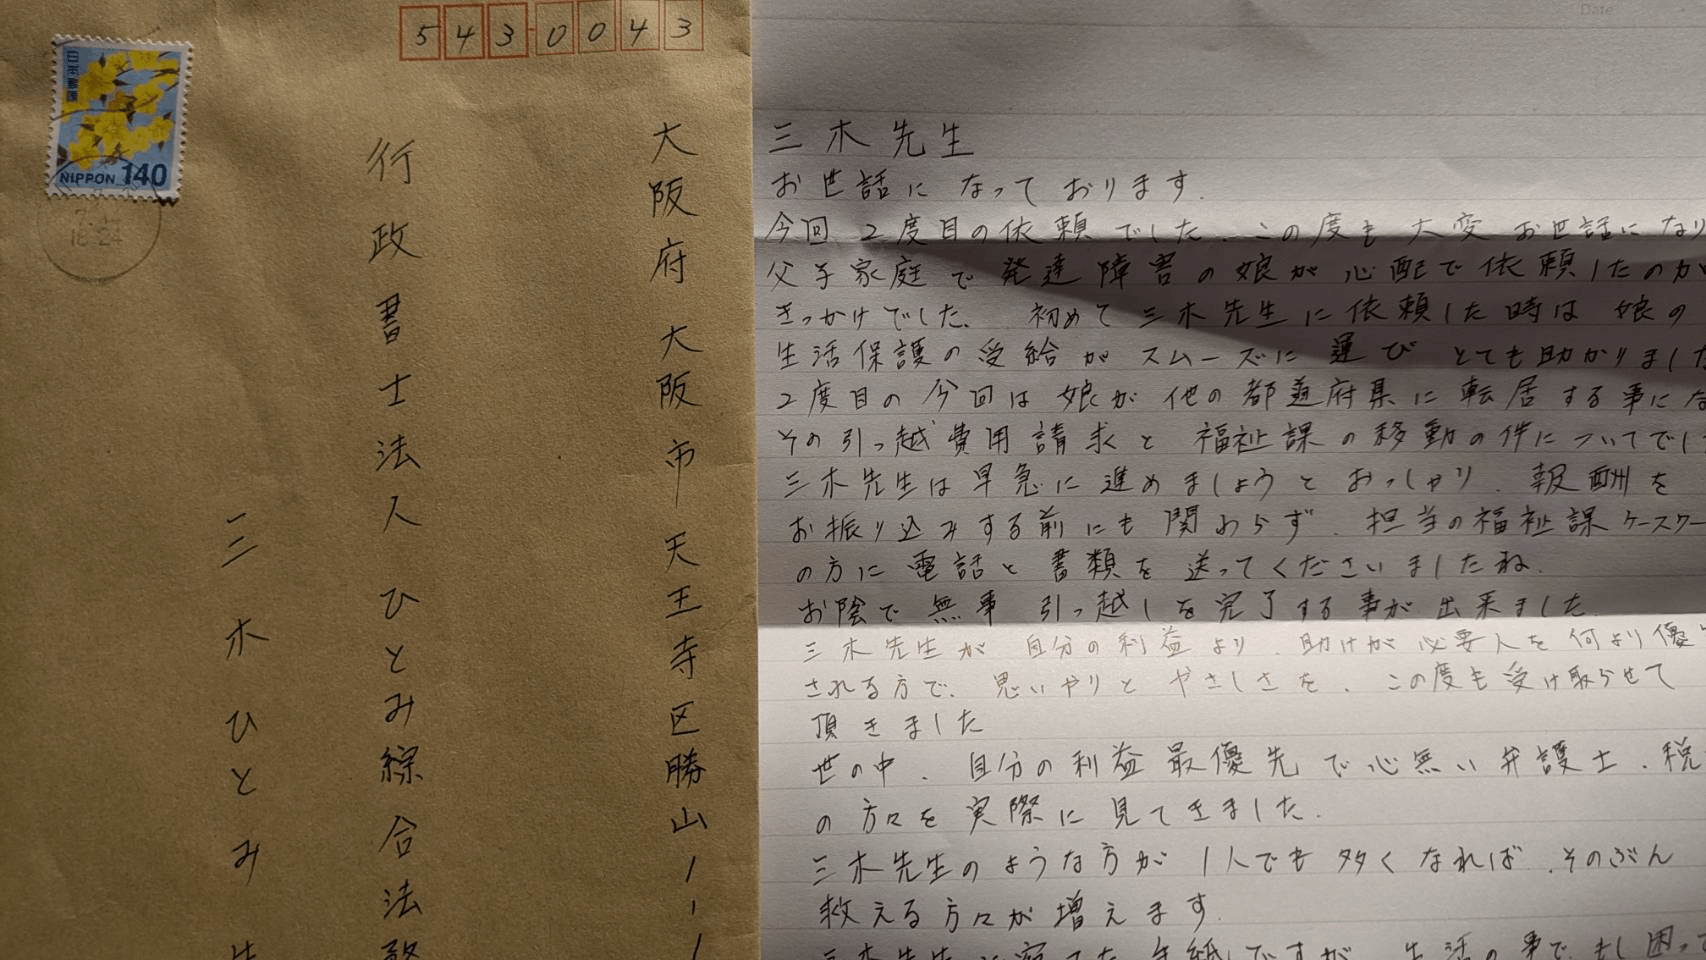 543-0043
日本郵便
NIPPON 140
18-24
大阪府大阪市天王寺区勝山1-1
行政書士法人ひとみ綜合法務
三木ひとみ
Date
三木先生
お世話になっております.
今回 2度目の依頼でした. この度も 大変 お世話になり
父子家庭で発達障害の娘が心配で依頼したのが
きっかけでした. 初めて三木先生に依頼した時は 娘の
生活保護の受給が スムーズに 運び とても助かりました
2度目の今回は 娘が 他の都道府県に 転居する事にな
その引っ越費用請求と 福祉課の移動の件についてでし
三木先生は早急に進めましょうと おっしゃり. 報酬を
お振り込みする前にも関わらず. 担当の福祉課ケースワー
の方に電話と書類を送ってくださいましたね.
お陰で無事 引っ越しを完了する事が出来ました
三木先生が 自分の利益より. 助けが必要人を何より優
される方で. 思いやりと やさしさを. この度も受け取らせて
頂きました
世の中. 自分の利益最優先で心無い弁護士. 税
の方々を実際に見てきました.
三木先生のような方が 1人でも多くなれば. そのぶん
救える方々が増えます.
三木先生に宛てたお手紙ですが. 生活の事で. もし困って